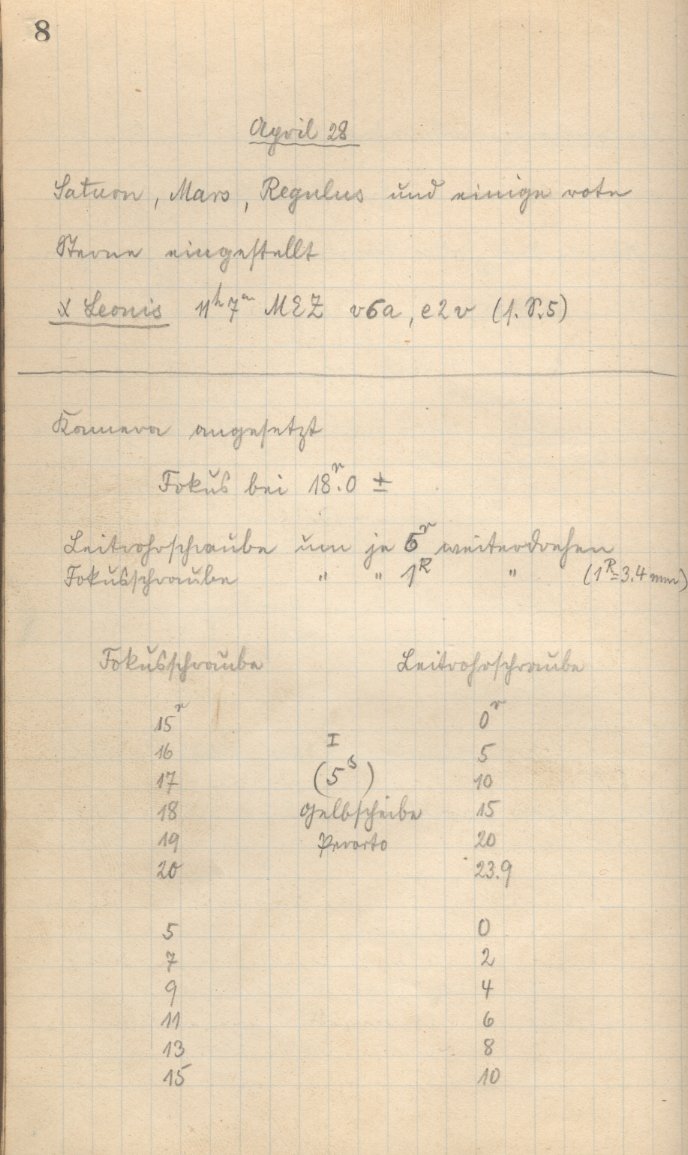 8
April 28
Saturn, Mars, Regulus und einige rote
Sterne eingestellt
Leonis 11h 7m MEZ v6a, e2v (1. S.5)
Kamera angesetzt
Fokus bei 18r.0 ±
Leitrohrschraube um je 5r weiterdrehen
Fokusschraube " " 1R " (1R=3.4 mm)
Fokusschraube Leitrohrschraube
15r 0r
16 I 5
17 (5s) 10
18 Gelbscheibe 15
19 20
20 23.9
5 0
7 2
9 4
11 6
13 8
15 10